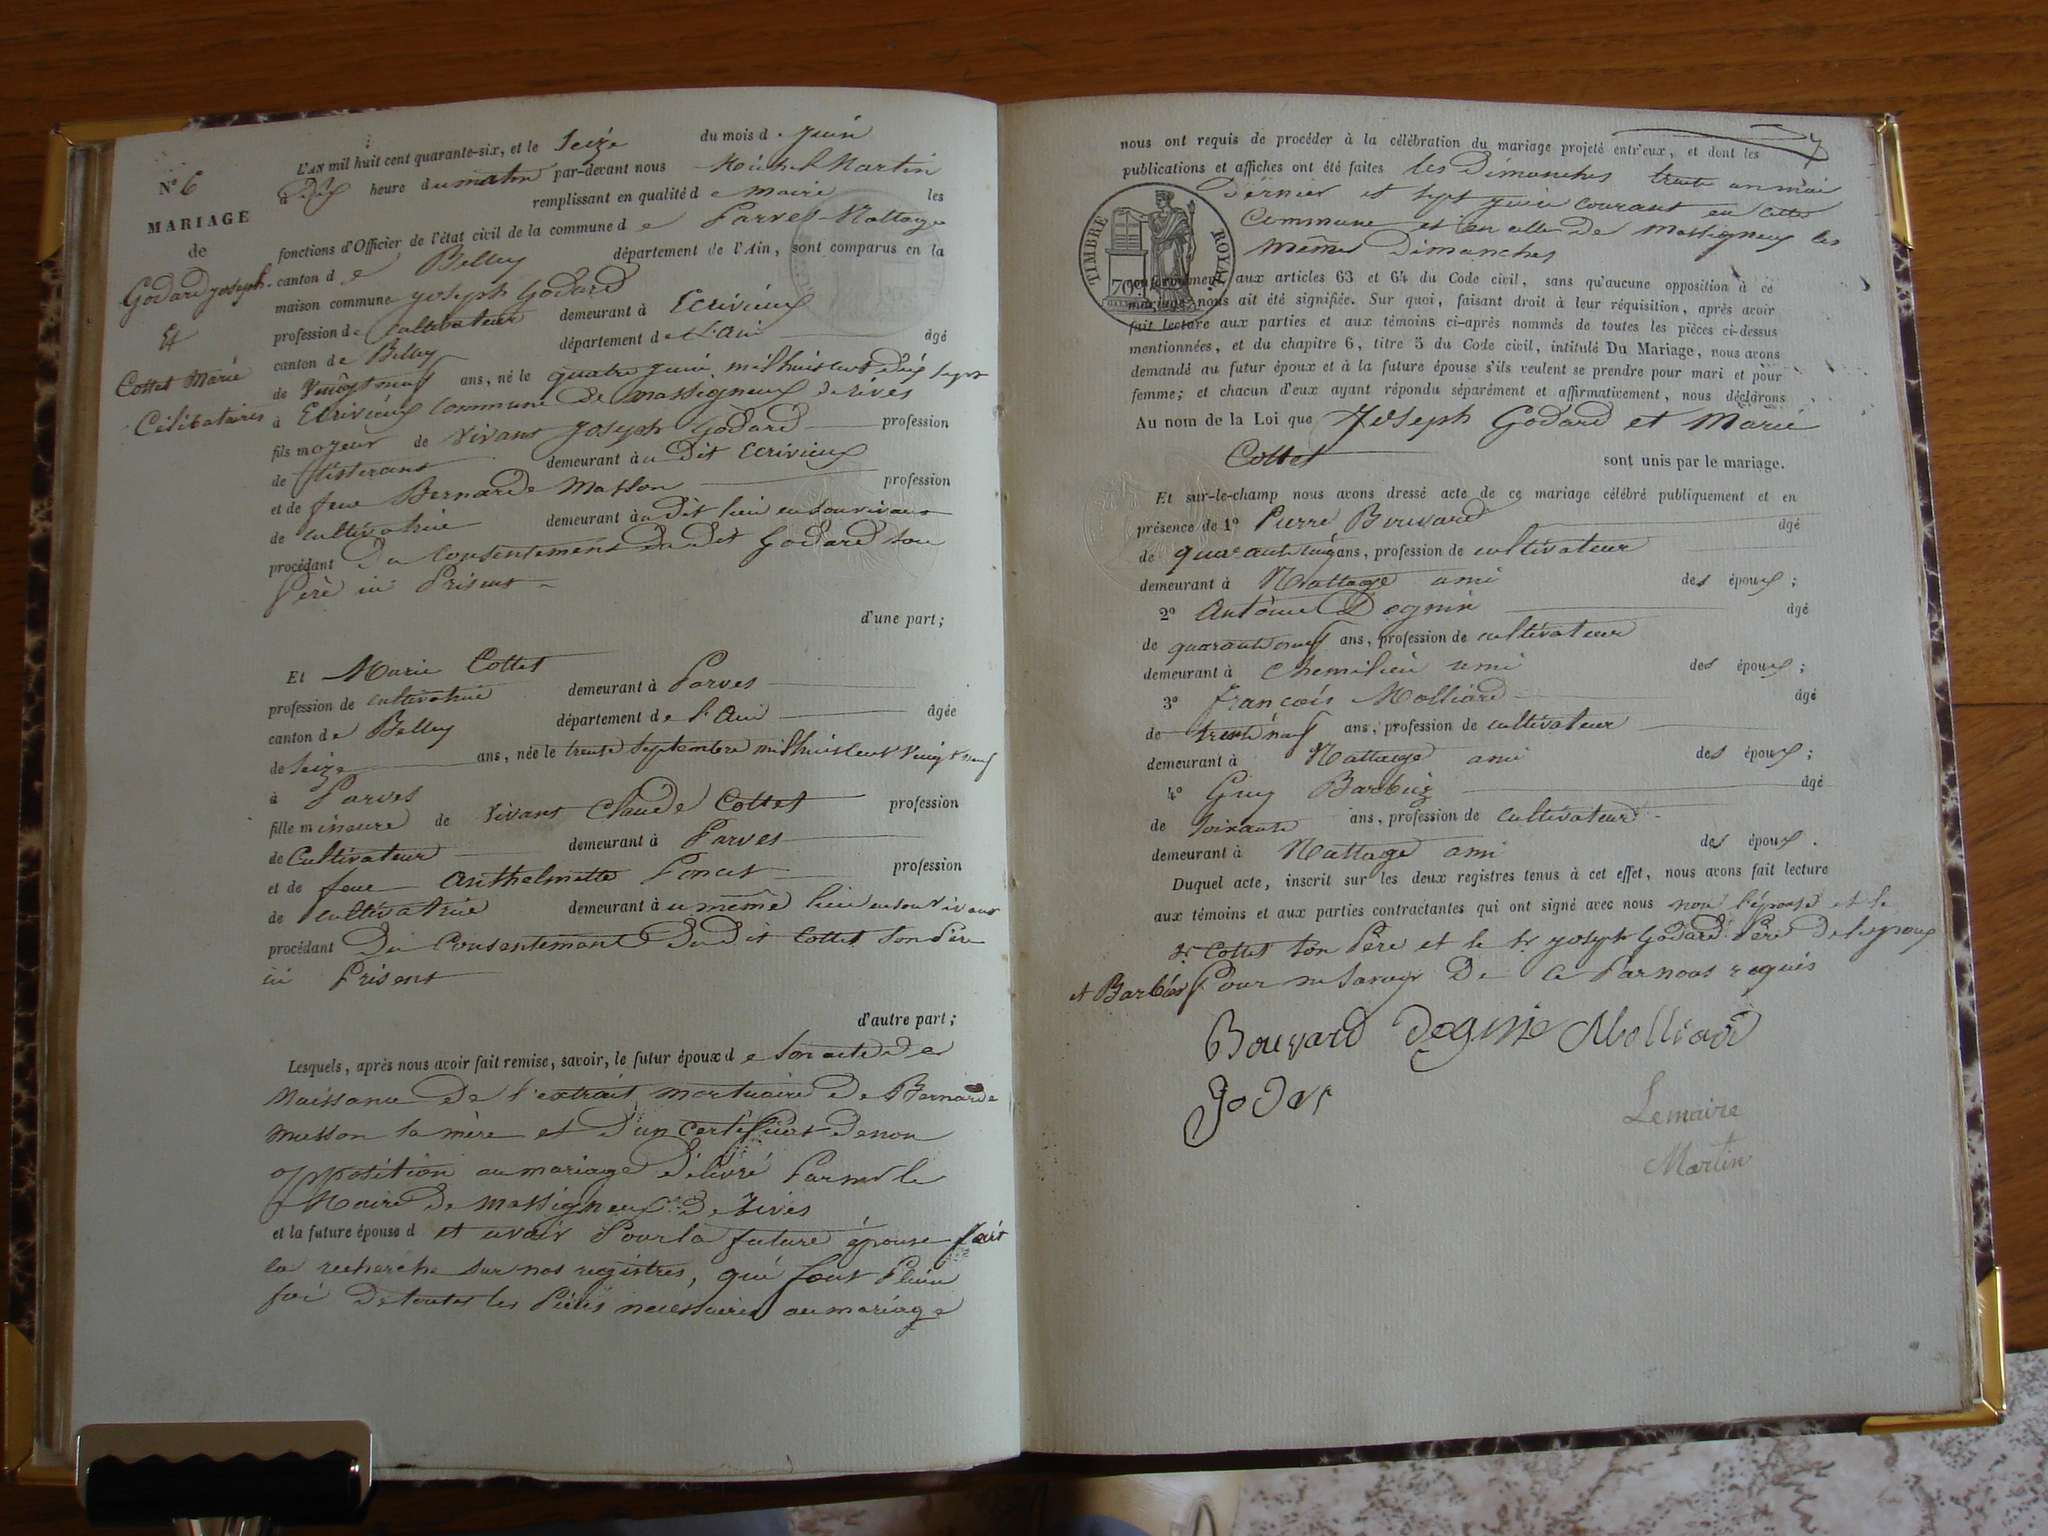 L'AN mil huit cent quarante-six, et le Seize du mois d juin
à Dix heure du matin par-devant nous Michel Martin
remplissant en qualité de maire les
fonctions d'Officier de l'état civil de la commune de Parves-Nattage
canton de Belley département de l'Ain, sont comparus en la
maison commune joseph Godard
profession de Cultivateur demeurant à Ecrivieux
canton de Belley département de L'Ain âgé
de Vingt neuf ans, né le quatre juin milhuit cent dix sept
à Ecrivieux commune De massigneux de rives
fils majeur de vivant joseph Godard profession
de demeurant au Dit Ecrivieux
et de feue Bernarde Masson profession
de cultivatrice demeurant au Dit lieu en son vivant
procédant Du Consentement du Dit Godard son
Père ici Présent
d'une part;
Nº 6
MARIAGE
de
Godard joseph
Et
Cottet Marie
Célibataires
Et Marie Cottet
profession de cultivatrice demeurant à Parves
canton de Belley département de l'Ain âgée
de Seize ans, née le treize Septembre milhuit cent vingt neuf
à Parves
fille mineure de vivant Claude Cottet profession
de Cultivateur demeurant à Parves
et de feue Anthelmette Poncet profession
de cultivatrice demeurant au même lieu en son vivant
procédant Du Consentement Du Dit Cottet son Père
ici Présent
d'autre part;
Lesquels, après nous avoir fait remise, savoir, le futur époux de Son acte de
Naissance De l'extrait mortuaire De Bernarde
Masson sa mère et D'un certificat de non
opposition au mariage Délivré Par mr le
Maire De Massigneux De rives
et la future épouse d et avoir Pour la future épouse fait
la recherche sur nos registres, qui font Pleine
foi De toutes les Pièces necessaires au mariage
nous ont requis de procéder à la célébration du mariage projeté entr'eux, et dont les
publications et affiches ont été faites les Dimanches trente un mai
Dernier et sept juin courant en cette
Commune et en celle de Massigneux les
mêmes Dimanches
TIMBRE ROYAL
conformément aux articles 63 et 64 du Code civil, sans qu'aucune opposition à ce
mariage nous ait été signifiée. Sur quoi, faisant droit à leur réquisition, après avoir
fait lecture aux parties et aux témoins ci-après nommés de toutes les pièces ci-dessus
mentionnées, et du chapitre 6, titre 5 du Code civil, intitulé Du Mariage, nous avons
demandé au futur époux et à la future épouse s'ils veulent se prendre pour mari et pour
femme; et chacun d'eux ayant répondu séparément et affirmativement, nous déclarons
Au nom de la Loi que Joseph Godard et Marie
Cottet sont unis par le mariage.
Et sur-le-champ nous avons dressé acte de ce mariage célébré publiquement et en
présence de 1º Pierre Bouvard âgé
de ans, profession de cultivateur
demeurant à Nattage ami des époux;
2º Antoine Dognin âgé
de quarante neuf ans, profession de cultivateur
demeurant à Chemilieu ami des époux;
3º françois Molliard âgé
de trente neuf ans, profession de cultivateur
demeurant à Nattage ami des époux;
4º Guy Barbier âgé
de soixante ans, profession de cultivateur
demeurant à Nattage ami des époux.
Duquel acte, inscrit sur les deux registres tenus à cet effet, nous avons fait lecture
aux témoins et aux parties contractantes qui ont signé avec nous non l'épouse et le
Sr Cottet son Père et le Sr joseph Godard Père de l'époux
et Barbier Pour ne savoir De ce Par nous requis
Bouvard Dognin Molliard
Godar
Lemaire
Martin